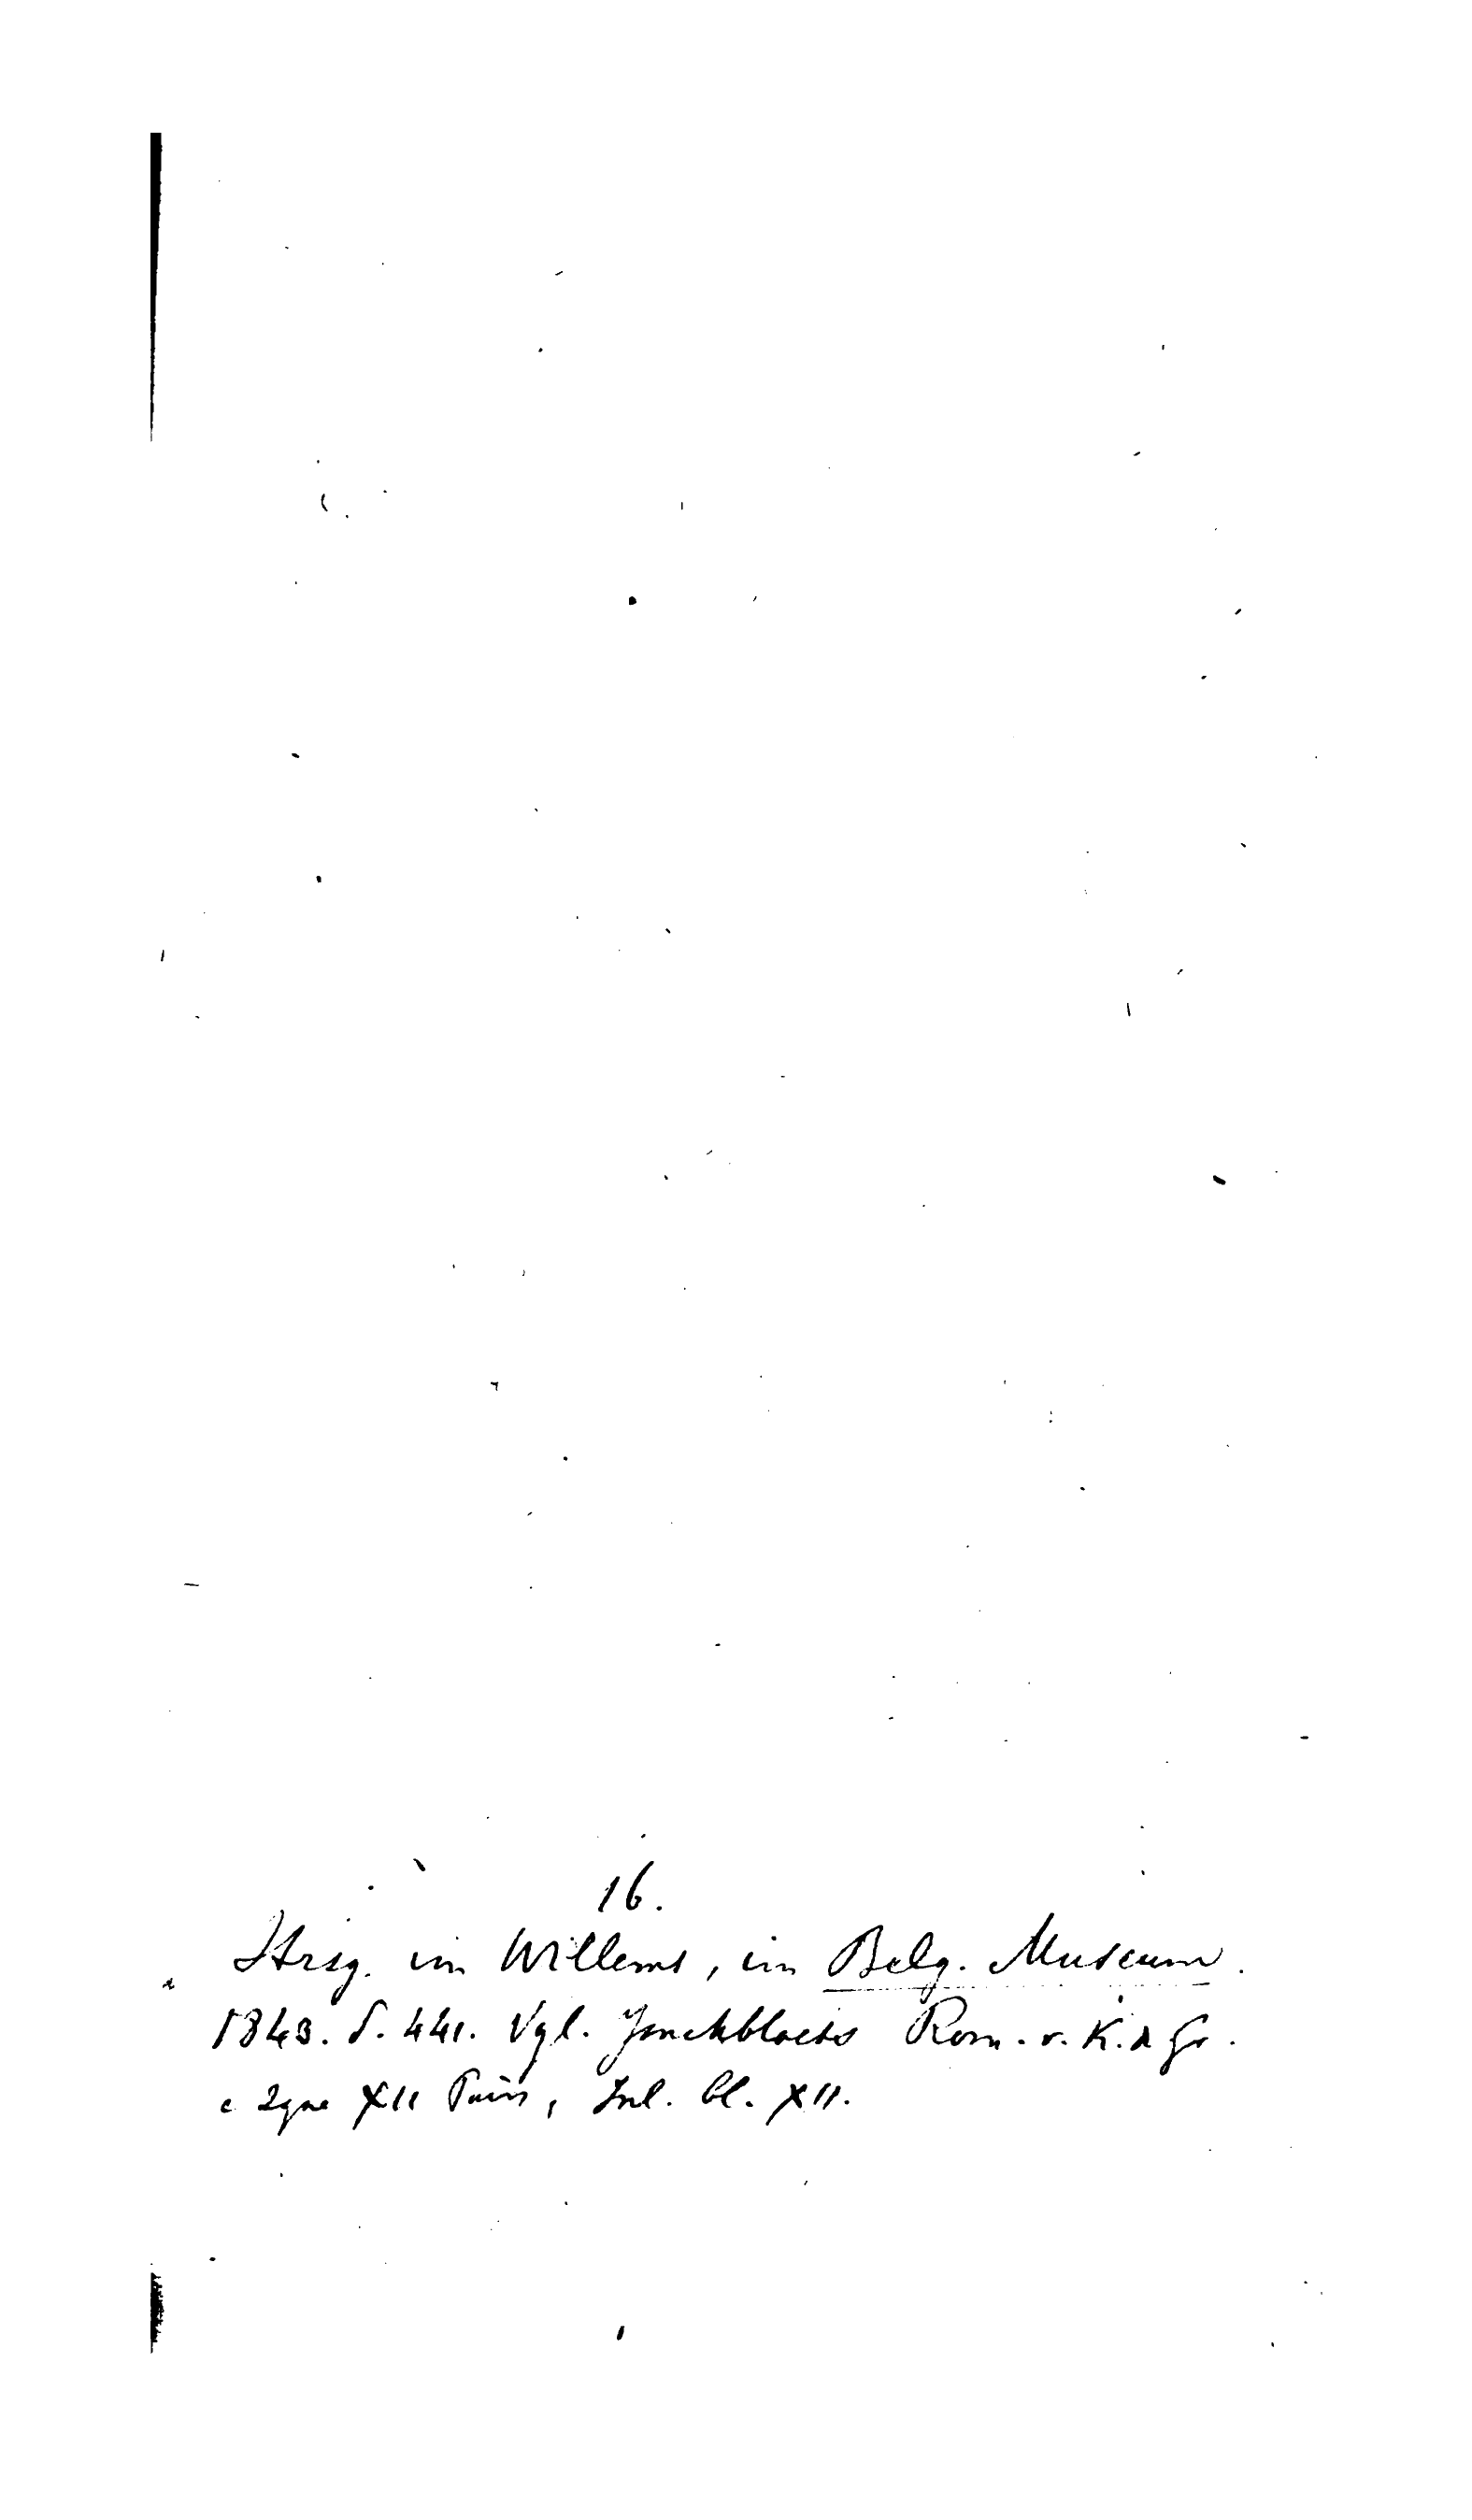 16.
Hrsg. in Willems, in Belg. Museum.
1843. S. 441. Vgl. Jonckbloets Rom. v. K. d Gr.
e. zyne XII Pairs, Inl. bl. XII.